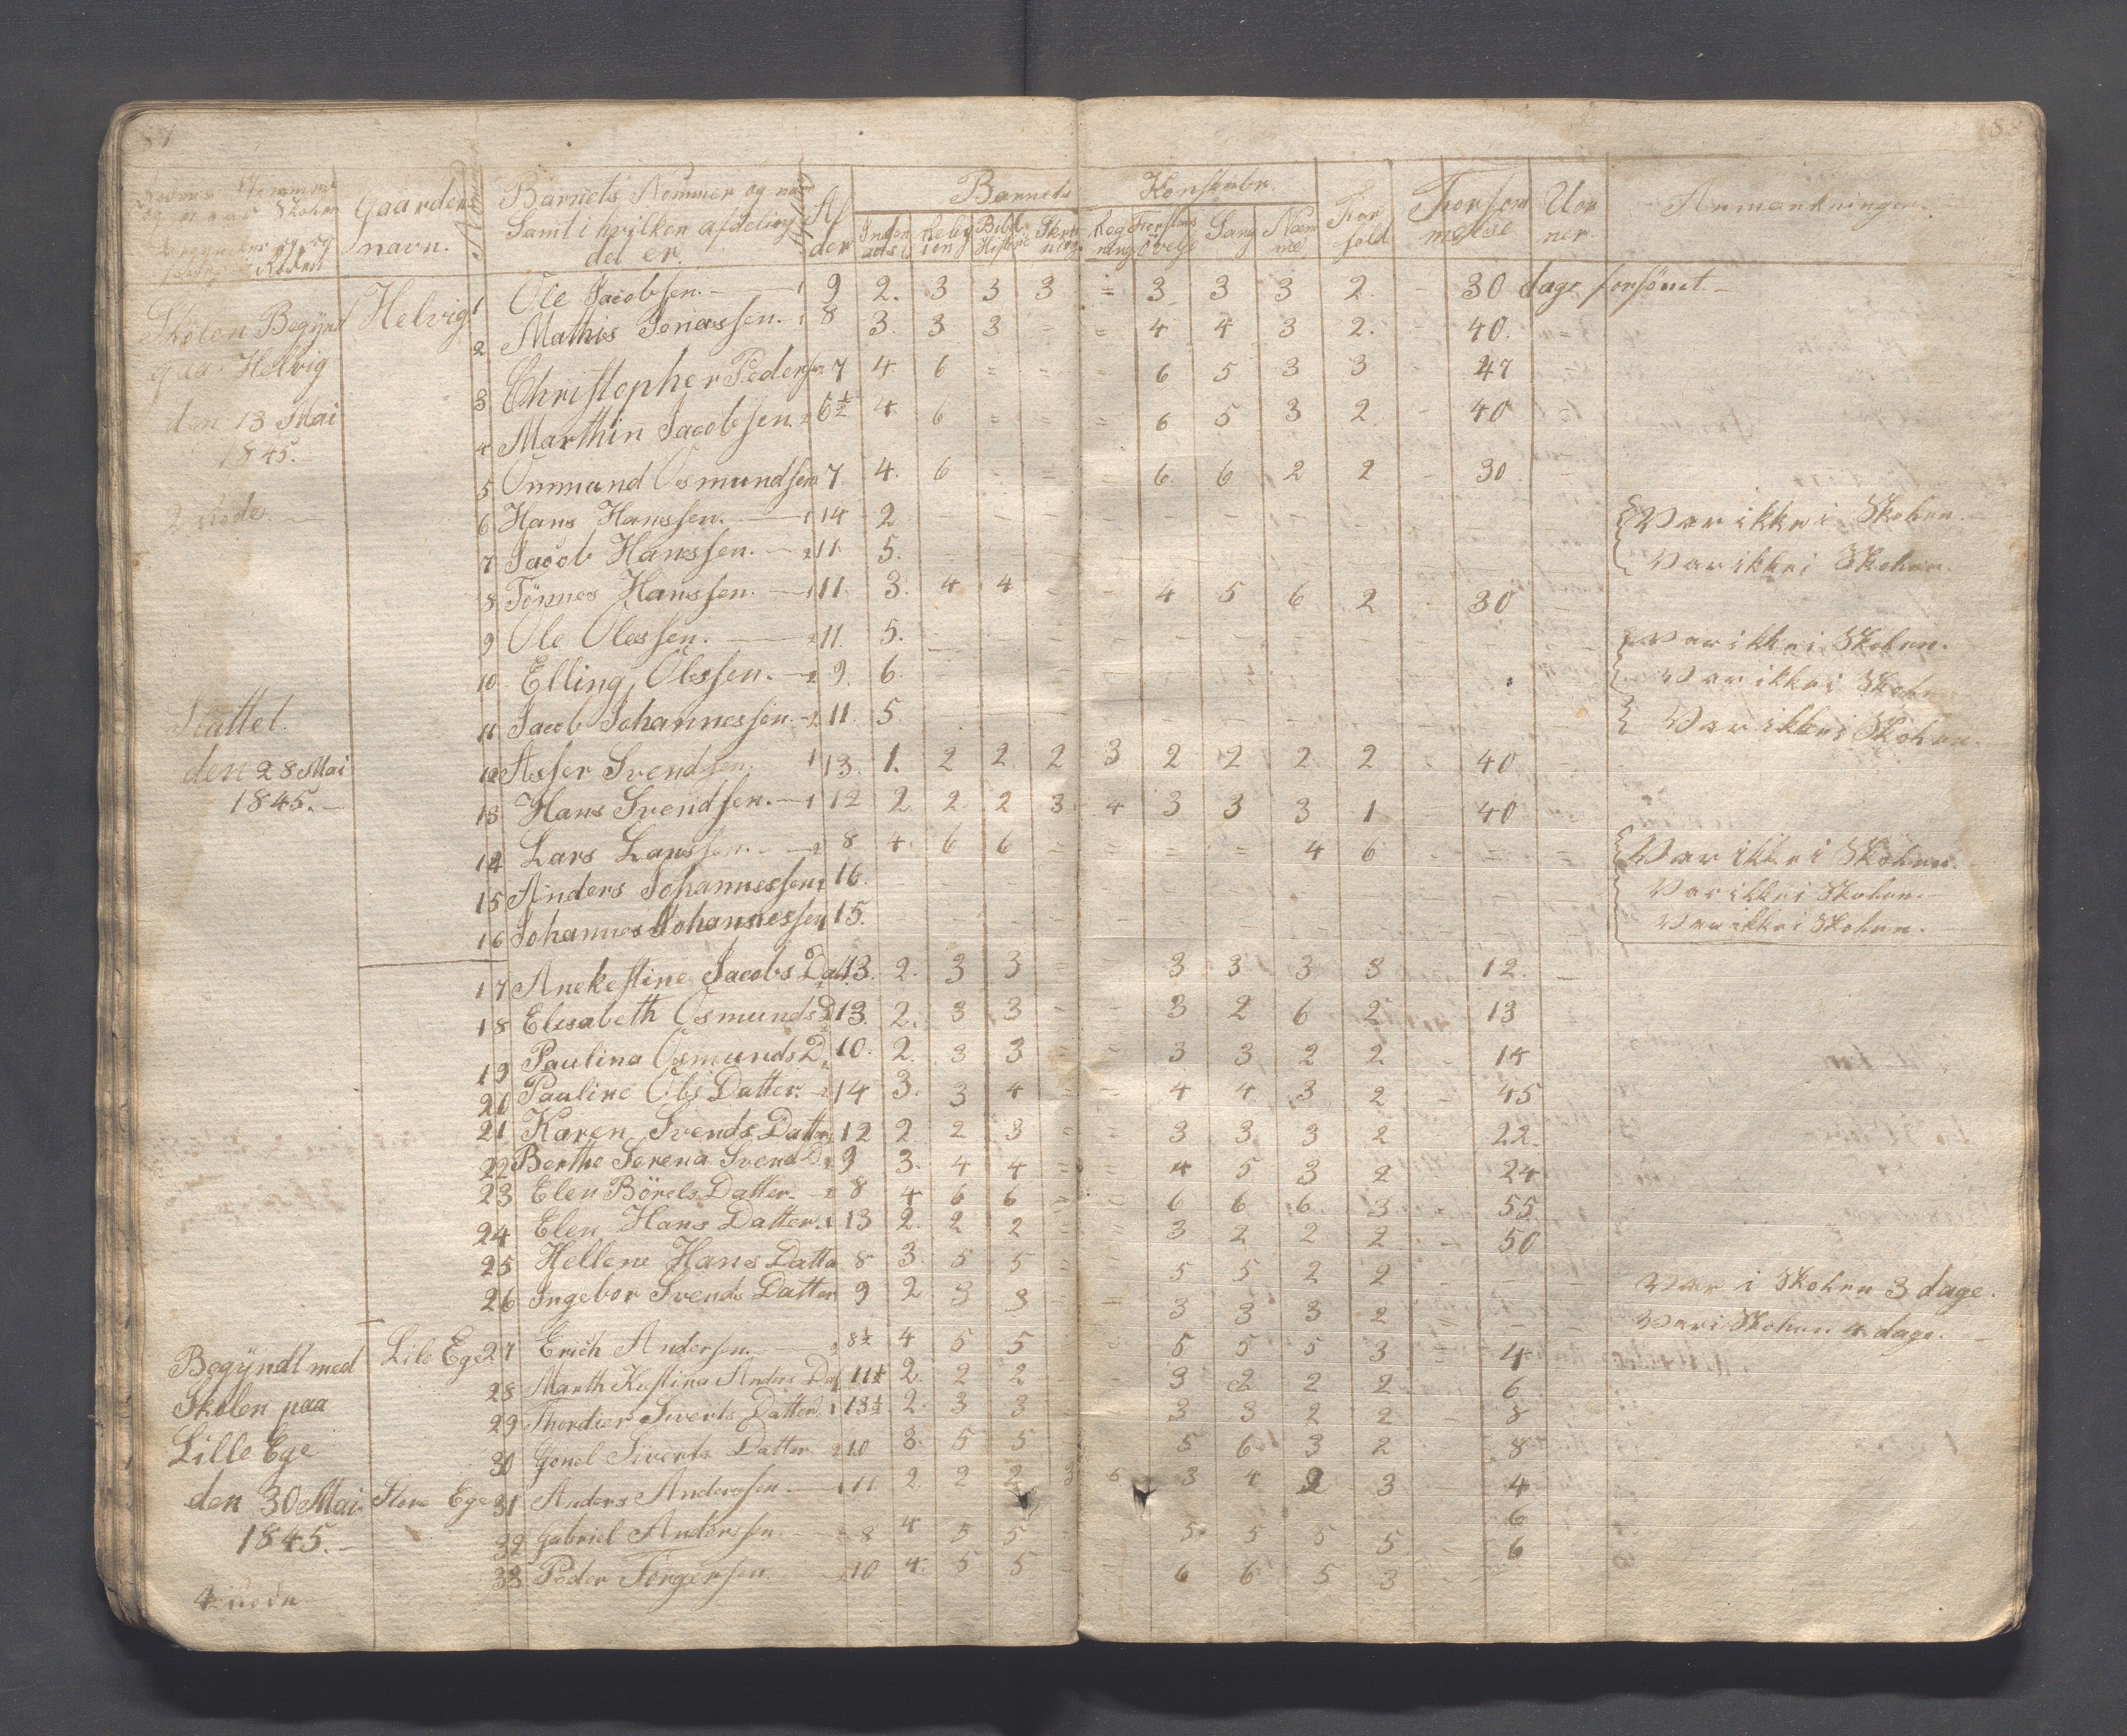 87
Gaarden
navn.
Barnets Nommer og navn
Samt i hvilken afdeling
det er.
Al
der
Barnets Konskaber
Inden
Relig
ion
Bibl.
Historie
Skriv
ning
Reg
ning
Forstands
övelse
Sang
Næm
me
For
hold
Forsøm
melse
Uor
ner
Anmærkninger.
Skolen Begynt
paa Helvig
den 13 Mai
1845.
Helvig
1 Ole Jacobsen. — 1 9 2. 3 3 3 = 3 3 3 2. - 30 dage forsömt. -
2 Mathis Jonassen. 1 8 3. 3 3 = = 4 4 3 2. - 40. =
3 Christopher Peders. 7 4 6 = - - 6 5 3 3 - 47 -
4 Marthin Jacobsen. 2 6½ 4. 6 = = = 6 5 3 2 - 40
5 Ommund Osmundsen 7. 4. 6 - = = 6 6 2 2 - 30 -
6 Hans Hanssen. — 1 14 2 Var ikke i Skolen.
7 Jacob Hanssen. — 2 11. 5. Var ikke i Skolen.
8 Tönnes Hanssen. — 1 11. 3. 4 4 = - 4 5 6 2 - 30 -
9 Ole Olessen. — 2 11. 5. Var ikke i Skolen.
10. Elling Olessen. — 2 9. 6. Var ikke i Skole
11 Jacob Johannessen. - 2 11. 5 Var ikke i Skolen
den 28 Mai
1845. -
12 Asser Svendsen. 1 13. 1. 2 2 2 3 2 2 2 2 - 40 -
13 Hans Svendsen. — 1 12 2 2 2 3 4 3 3 3 1 - 40
14 Lars Larssen. — 2 8 4. 6 6 = = = = 4 6 - = = Var ikke i Skolen.
15 Anders Johannessen 1 16. Var ikke i Skolen.
16 Johannes Johannessen 15. Var ikke i Skolen.
17 Anekestine Jacobs Dat 13. 2. 3 3 = - 3 3 3 3 12. -
18 Elisabeth Osmunds D 13. 2. 3 3 - - 3 2 6 2 13
19 Paulina Osmunds D. 10. 2. 3 3 = - 3 3 2 2 - 14
20 Pauline Ols Datter. 2 14 3. 3 4 = - 4 4 3 2 - 45
21 Karen Svends Datter 12 2 2 3 = = 3 3 3 2 - 22.
22 Berthe Serena Svend D. 9 3. 4 4 = = 4 5 3 2 24
23 Elen Börels Datter. - 2 8 4 6 6 = = 6 6 6 3 - 55
24 Elen Hans Datter. 1 13 2. 2 2 = = 3 2 2 2 - 50
25 Hellene Hans Datte 8 3. 5 5 = 5 5 2 2 - - - Var i Skolen 3 dage.
26 Ingebor Svends Datter 9 2 3 3 - - 3 3 3 2 = - - Var i Skolen 4 dage. -
Begyndt med
Skolen paa
Lille Ege
den 30 Mai
1845. -
Lile Ege
27 Erich Andersen. — 2 8½ 4 5 5 5 5 5 3 - 4
28 Marth Kistina Anders Dat 11½ 2. 2 2 3 2 2 2 6
29 Thordier Siverts Datter. 1 13½ 2. 3 3 3 3 2 2 - 8
30 Gonel Siverts Datter. 2 10 3. 5 5 5 6 3 2 - 8
Store Ege
31 Anders Anderssen. — 1 11. 2 2 2 3 5 3 4 2 3 - 4
32 Gabriel Anderssen. — 8 4 5 5 5 5 5 5 6
33 Peder Torgersen. — 10 4. 5 5 6 6 5 3 - 6